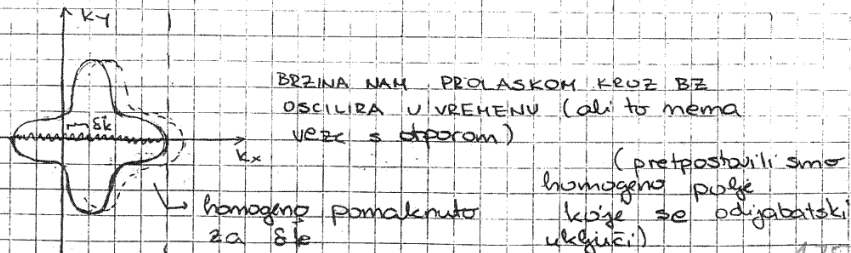 ky
BRZINA NAM PROLASKOM KROZ BZ
OSCILIRA U VREMENU (ali to nema
veze s otporom)
δk
kx
(pretpostavili smo
homogeno polje
koje se odijabatski
uključi)
homogeno pomaknuto
za δk